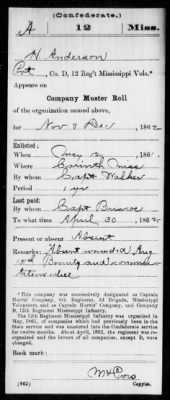 (Confederate.)
A 12 Miss.
H Anderson
Pvt, Co. D, 12 Reg't Mississippi Vols.*
Appears on
Company Master Roll
of the organization named above,
for Nov & Dec, 1862
Enlisted:
When May 12, 1861.
Where Corinth Miss
By whom Capt Walker
Period 1 yr
Last paid:
By whom Capt Briscoe
To what time April 30, 1862
Present or absent Absent
Remarks: Absent wounded Aug
Bounty and commu-
tation due
*This company was successively designated as Captain
Harris' Company, 5th Regiment, 3d Brigade, Mississippi
Volunteers, and as Captain Harris' Company, and Company
D, 12th Regiment Mississippi Infantry.
The 12th Regiment Mississippi Infantry was organized in
May, 1861, of companies which had previously been in the
State service and was mustered into the Confederate service
for twelve months. About April, 1862, the regiment was re-
organized and the letters of all companies, except D, were
changed.
Book mark:
(662)
Copyist.